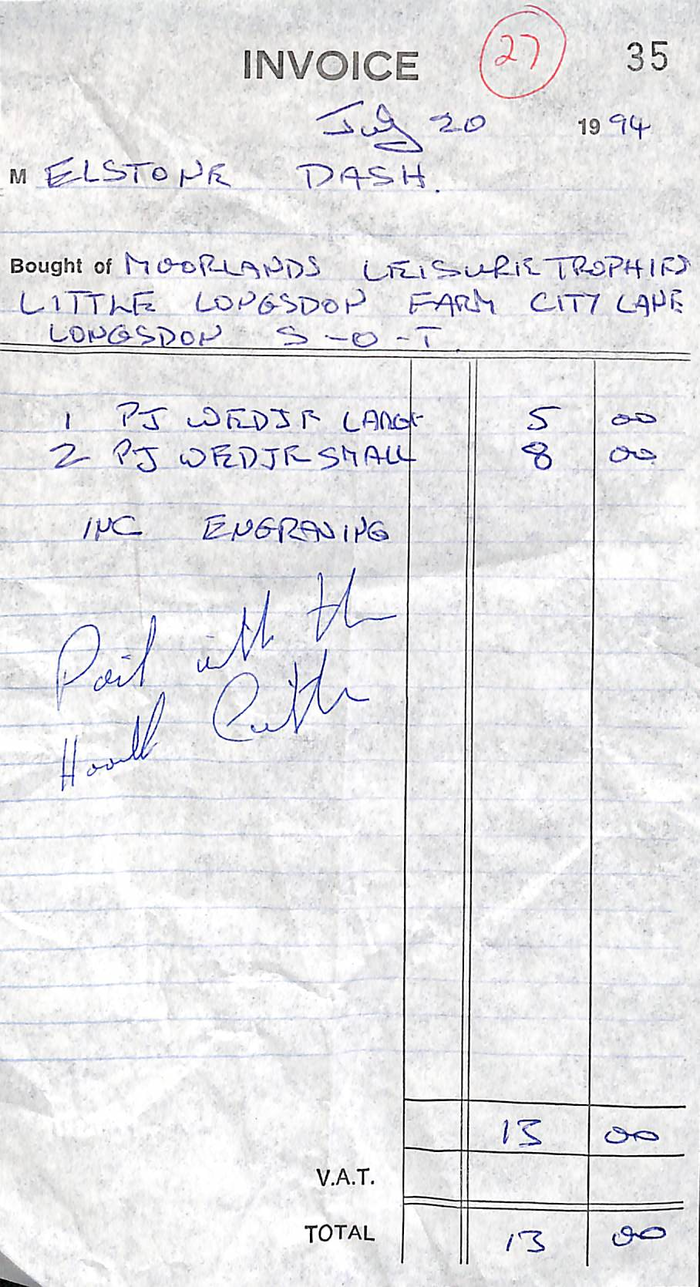 INVOICE 27 35
July 20 1994
M ELSTONE DASH.
Bought of MOORLANDS LEISURE TROPHIES
LITTLE LONGSDON FARM CITY LANE
LONGSDON S-O-T
1 PJ WEDJE LARGE 5 00
2 PJ WEDJE SMALL 8 00
INC ENGRAVING
Paid with the
13 00
V.A.T.
TOTAL 13 00